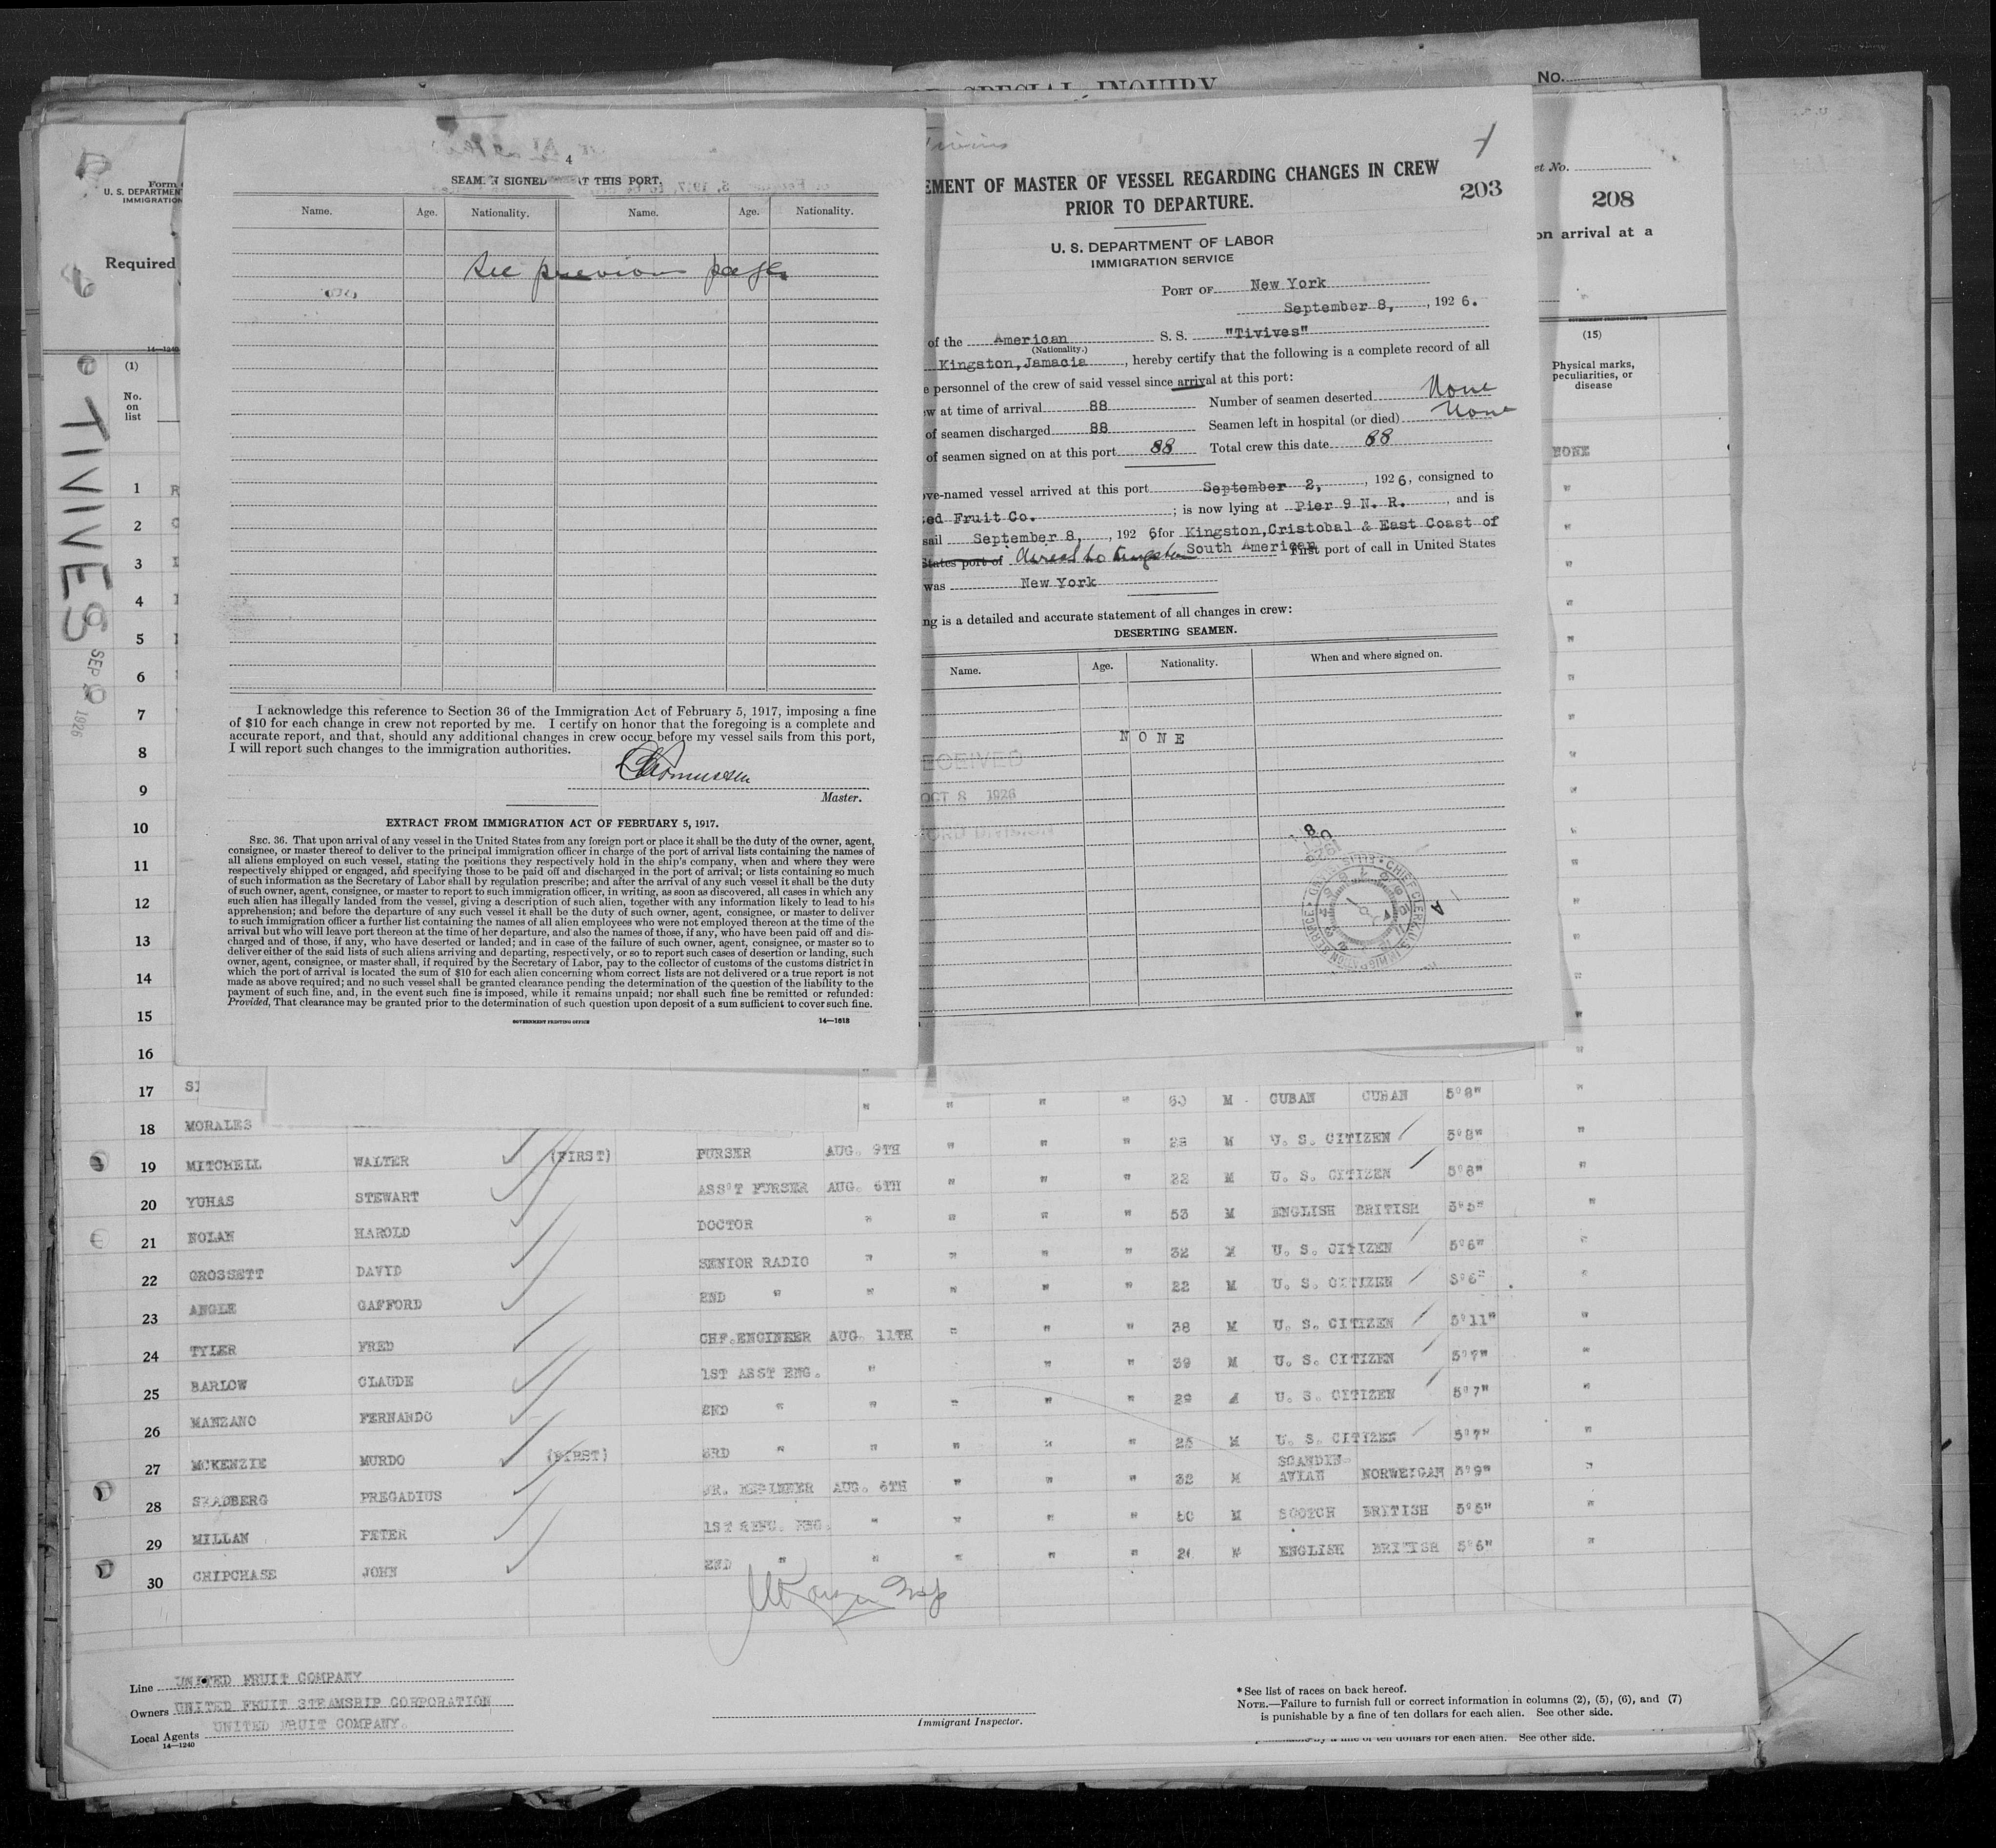 SPECIAL INQUIRY
No.
4
SEAMEN SIGNED AT THIS PORT.
Name. Age. Nationality. Name. Age. Nationality.
See previous page
I acknowledge this reference to Section 36 of the Immigration Act of February 5, 1917, imposing a fine
of $10 for each change in crew not reported by me. I certify on honor that the foregoing is a complete and
accurate report, and that, should any additional changes in crew occur before my vessel sails from this port,
I will report such changes to the immigration authorities.
Master.
EXTRACT FROM IMMIGRATION ACT OF FEBRUARY 5, 1917.
SEC. 36. That upon arrival of any vessel in the United States from any foreign port or place it shall be the duty of the owner, agent,
consignee, or master thereof to deliver to the principal immigration officer in charge of the port of arrival lists containing the names of
all aliens employed on such vessel, stating the positions they respectively hold in the ship's company, when and where they were
respectively shipped or engaged, and specifying those to be paid off and discharged in the port of arrival; or lists containing so much
of such information as the Secretary of Labor shall by regulation prescribe; and after the arrival of any such vessel it shall be the duty
of such owner, agent, consignee, or master to report to such immigration officer, in writing, as soon as discovered, all cases in which any
such alien has illegally landed from the vessel, giving a description of such alien, together with any information likely to lead to his
apprehension; and before the departure of any such vessel it shall be the duty of such owner, agent, consignee, or master to deliver
to such immigration officer a further list containing the names of all alien employees who were not employed thereon at the time of the
arrival but who will leave port thereon at the time of her departure, and also the names of those, if any, who have been paid off and dis-
charged and of those, if any, who have deserted or landed; and in case of the failure of such owner, agent, consignee, or master so to
deliver either of the said lists of such aliens arriving and departing, respectively, or so to report such cases of desertion or landing, such
owner, agent, consignee, or master shall, if required by the Secretary of Labor, pay to the collector of customs of the customs district in
which the port of arrival is located the sum of $10 for each alien concerning whom correct lists are not delivered or a true report is not
made as above required; and no such vessel shall be granted clearance pending the determination of the question of the liability to the
payment of such fine, and, in the event such fine is imposed, while it remains unpaid; nor shall such fine be remitted or refunded:
Provided, That clearance may be granted prior to the determination of such question upon deposit of a sum sufficient to cover such fine.
GOVERNMENT PRINTING OFFICE 14—1618
EMENT OF MASTER OF VESSEL REGARDING CHANGES IN CREW
PRIOR TO DEPARTURE.
203
U. S. DEPARTMENT OF LABOR
IMMIGRATION SERVICE
PORT OF New York
September 8, , 192 6.
of the American S. S. "Tivives"
(Nationality.)
Kingston, Jamacia , hereby certify that the following is a complete record of all
e personnel of the crew of said vessel since arrival at this port:
ew at time of arrival 88 Number of seamen deserted None
of seamen discharged 88 Seamen left in hospital (or died) None
of seamen signed on at this port 88 Total crew this date 88
ove-named vessel arrived at this port September 2, , 192 6, consigned to
ed Fruit Co. ; is now lying at Pier 9 N. R. , and is
sail September 8, , 192 6 for Kingston, Cristobal & East Coast of
States port of direct to Kingston South American First port of call in United States
was New York
ng is a detailed and accurate statement of all changes in crew:
DESERTING SEAMEN.
Name. Age. Nationality. When and where signed on.
NONE
RECEIVED
OCT 8 1926
CHIEF CLERK U.S. IMMIGRATION SERVICE
Form
U. S. DEPARTMENT
IMMIGRATION
Required
14—1240
et No.
208
on arrival at a
GOVERNMENT PRINTING OFFICE
(1)
No. on list
(15)
Physical marks, peculiarities, or disease
TIVIVES
SEP 1926
NONE
1 R
2
3
4
5
6
7
8
9
10
11
12
13
14
15
16
17
" " " " M CUBAN CUBAN 5'8" "
18 MORALES
" " " M U. S. CITIZEN 5'8" "
19 MITCHELL WALTER (FIRST) PURSER AUG. 9TH
" " " 22 M U. S. CITIZEN "
20 YUHAS STEWART ASS'T PURSER AUG. 6TH
" " " " 53 M ENGLISH BRITISH "
21 NOLAN HAROLD DOCTOR
" " " " 32 M U. S. CITIZEN 5'6" "
22 GROSSETT DAVID SENIOR RADIO
" " " " 22 M U. S. CITIZEN "
23 ANGLE GAFFORD 2ND "
" " " 38 M U. S. CITIZEN 5'11" "
24 TYLER FRED CHF. ENGINEER AUG. 11TH
" " " 39 M U. S. CITIZEN 5'7" "
25 BARLOW CLAUDE 1ST ASST ENG.
" " " " 29 U. S. CITIZEN 5'7" "
26 MANZANO FERNANDO 2ND "
" " " " M U. S. CITIZEN 5'7" "
27 MCKENZIE MURDO (FIRST) 3RD "
" " " 32 M SCANDIN-AVIAN NORWEIGAN 5'9" "
28 PREGADIUS JR. ENGINEER AUG. 6TH
" " " " M SCOTCH BRITISH 5'5" "
29 MILLAN PETER 1ST REFG. ENG.
" " " " M ENGLISH BRITISH 5'6" "
30 CHIPCHASE JOHN 2ND "
Line UNITED FRUIT COMPANY
Owners UNITED FRUIT STEAMSHIP CORPORATION
Local Agents UNITED FRUIT COMPANY.
14—1240
Immigrant Inspector.
* See list of races on back hereof.
NOTE.—Failure to furnish full or correct information in columns (2), (5), (6), and (7)
is punishable by a fine of ten dollars for each alien. See other side.
punishable by a fine of ten dollars for each alien. See other side.